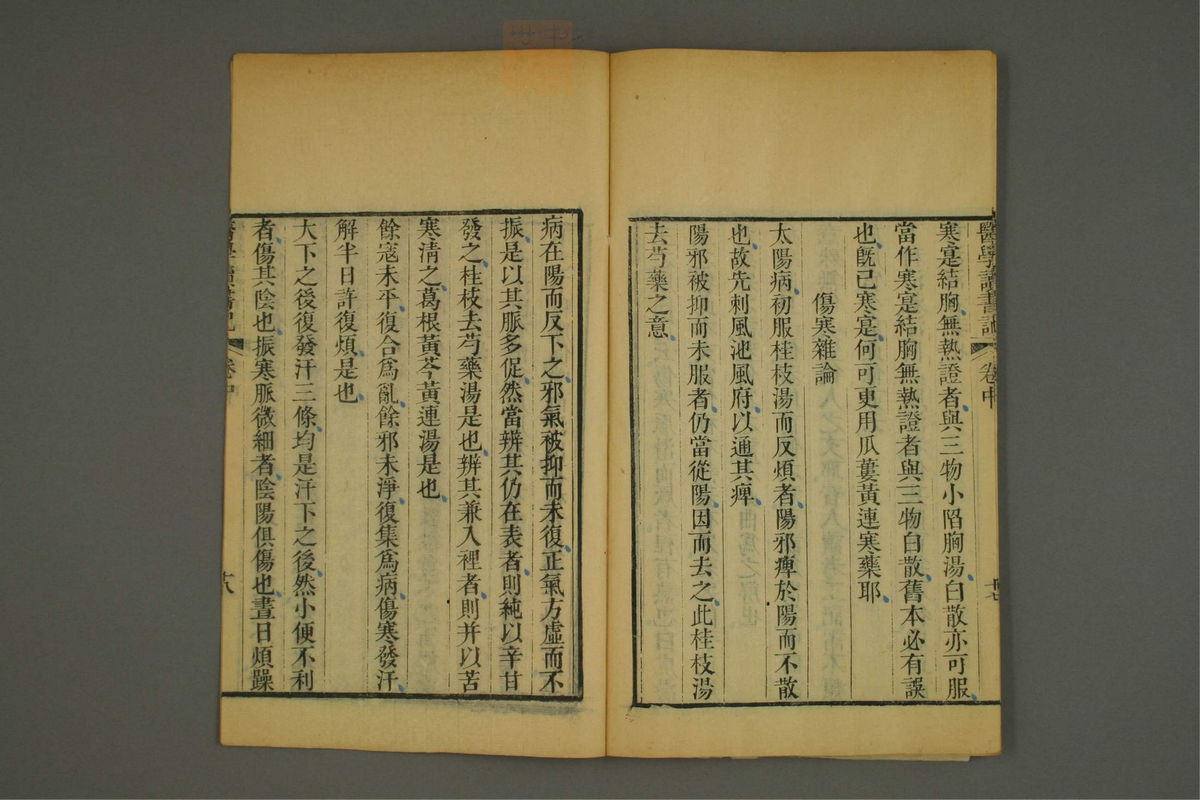 醫學讀書記 卷中 十七
寒寔結胸無熱證者與三物小陷胸湯白散亦可服
當作寒寔結胸無熱證者與三物白散舊本必有誤
也旣已寒寔何可更用瓜蔞黃連寒藥耶
傷寒雜論
太陽病初服桂枝湯而反煩者陽邪痺於陽而不散
也故先刺風池風府以通其痺
陽邪被抑而未服者仍當從陽因而去之此桂枝湯
去芍藥之意
病在陽而反下之邪氣被抑而未復正氣方虛而不
振是以其脈多促然當辨其仍在表者則純以辛甘
發之桂枝去芍藥湯是也辨其兼入裡者則并以苦
寒淸之葛根黃芩黃連湯是也
餘寇未平復合爲亂餘邪未淨復集爲病傷寒發汗
解半日許復煩是也
大下之後復發汗三條均是汗下之後然小便不利
者傷其陰也振寒脈微細者陰陽俱傷也晝日煩躁
醫學讀書記 卷中 十八